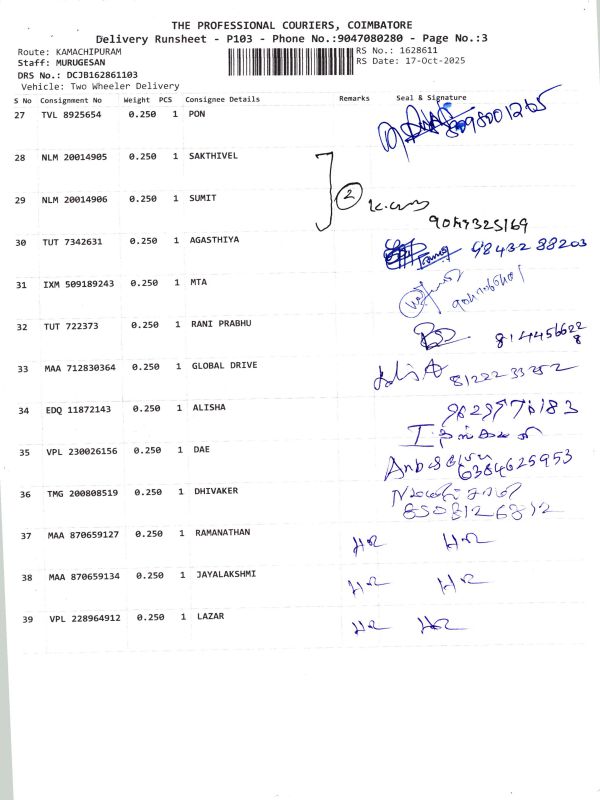 THE PROFESSIONAL COURIERS, COIMBATORE
Delivery Runsheet - P103 - Phone No.:9047080280 - Page No.:3
Route: KAMACHIPURAM
RS No.: 1628611
Staff: MURUGESAN
RS Date: 17-Oct-2025
DRS No.: DCJB162861103
Vehicle: Two Wheeler Delivery
S No Consignment No Weight PCS Consignee Details Remarks Seal & Signature
27 TVL 8925654 0.250 1 PON
28 NLM 20014905 0.250 1 SAKTHIVEL
2
29 NLM 20014906 0.250 1 SUMIT
30 TUT 7342631 0.250 1 AGASTHIYA 98432 88203
31 IXM 509189243 0.250 1 MTA
32 TUT 722373 0.250 1 RANI PRABHU 8144566228
33 MAA 712830364 0.250 1 GLOBAL DRIVE 81222 33252
34 EDQ 11872143 0.250 1 ALISHA
35 VPL 230026156 0.250 1 DAE
6384625953
36 TMG 200808519 0.250 1 DHIVAKER
8508126812
37 MAA 870659127 0.250 1 RAMANATHAN
38 MAA 870659134 0.250 1 JAYALAKSHMI
39 VPL 228964912 0.250 1 LAZAR